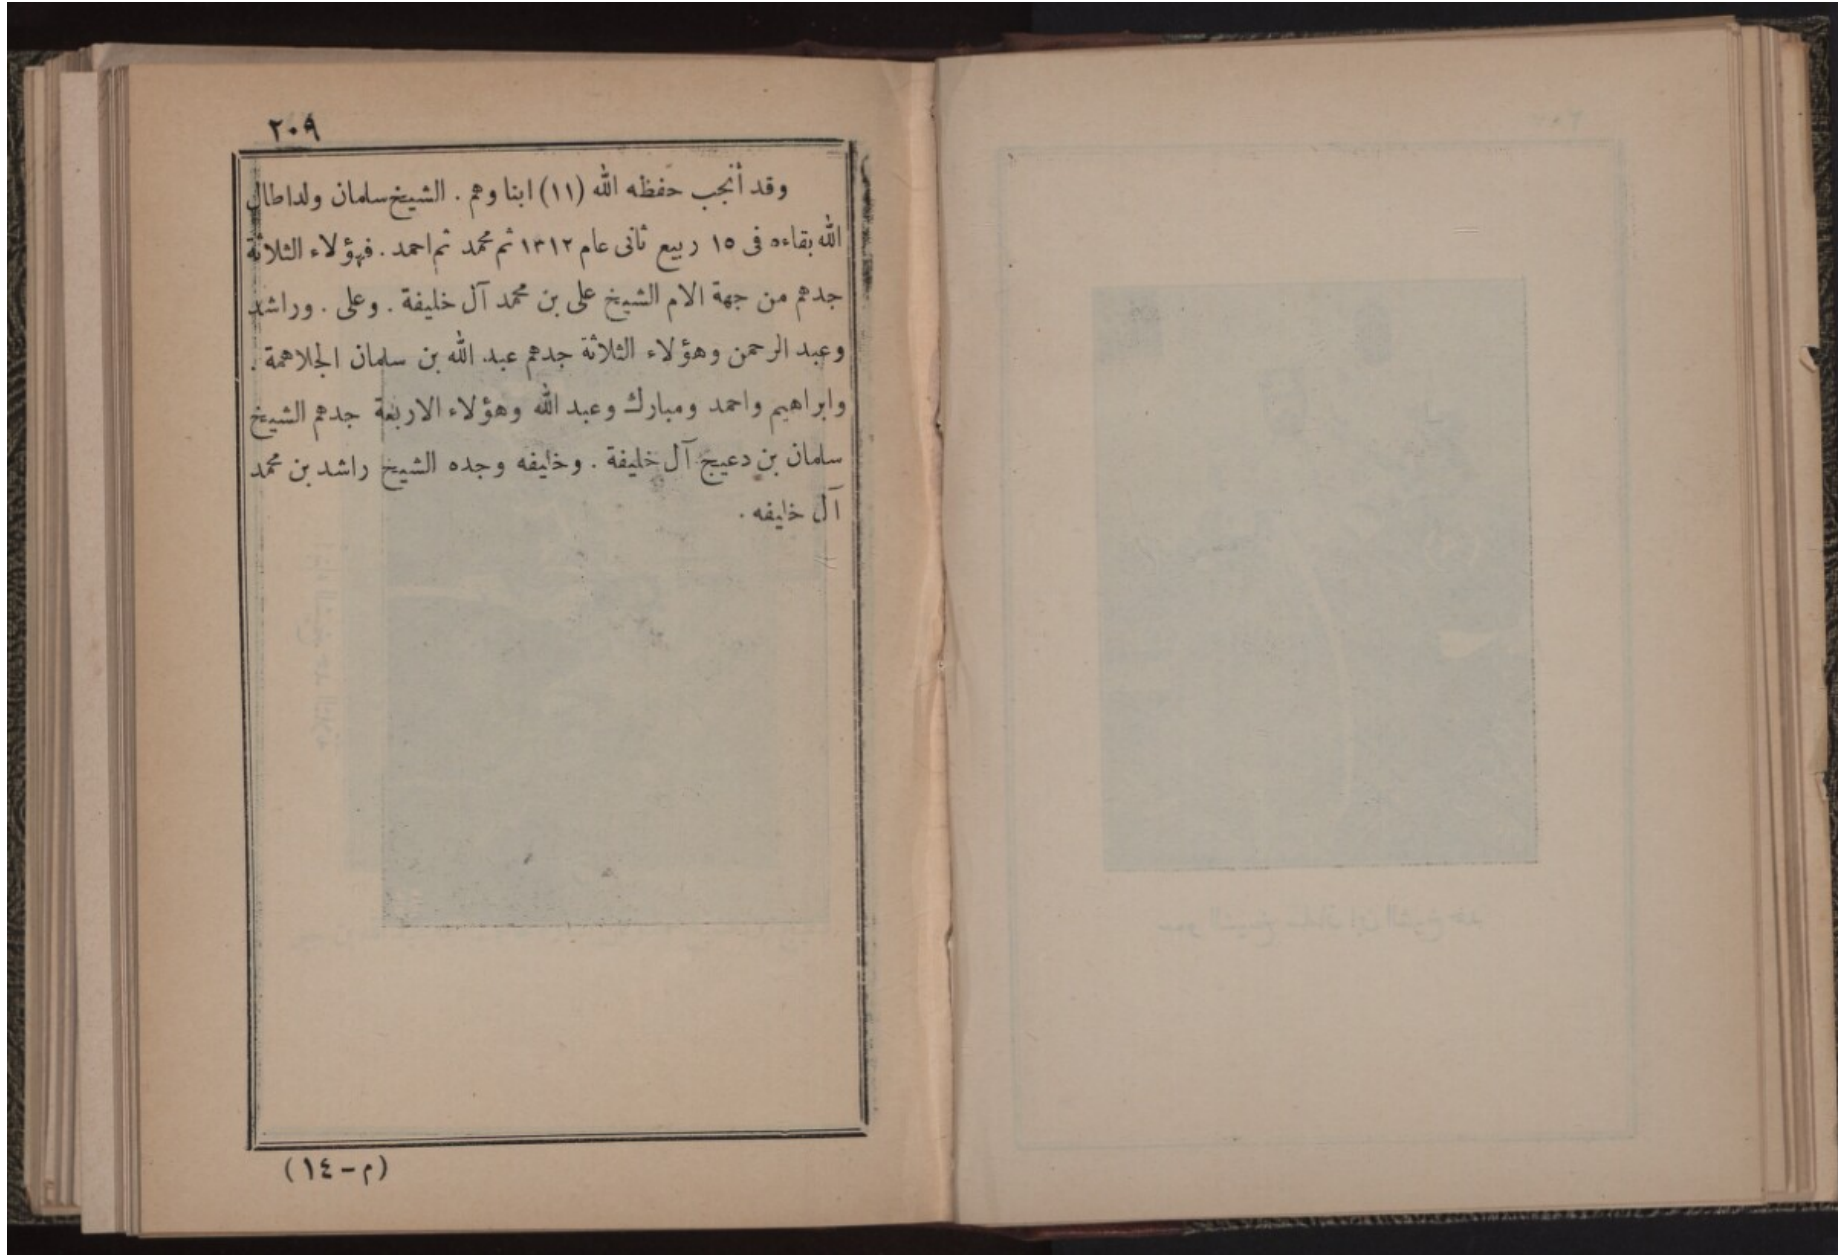 ٢٠٩
وقد أنجب حفظه الله (١١) ابنا وهم . الشيخ سلمان ولد اطال
الله بقاءه فى ١٥ ربيع ثانى عام ١٣١٢ ثم محمد ثم احمد . فهؤلاء الثلاثة
جدهم من جهة الام الشيخ على بن محمد آل خليفة . وعلى . وراشد
وعبد الرحمن وهؤلاء الثلاثة جدهم عبد الله بن سلمان الجلاهمة .
وابراهيم واحمد ومبارك وعبد الله وهؤلاء الاربعة جدهم الشيخ
سلمان بن دعيج آل خليفة . وخليفه وجده الشيخ راشد بن محمد
آل خليفه .
(م-١٤)